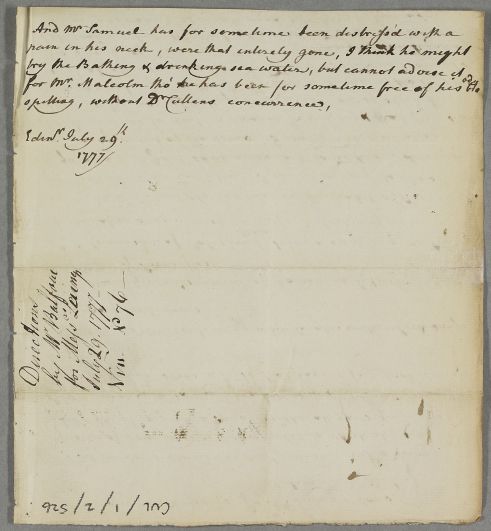 And Mr Samuel has for sometime been distress'd with a
pain in his neck, were that intirely gone, I think he might
try the Bathing & drinking sea water, but cannot advise it
for Mr. Malcolm tho' he has been for sometime free of his blo
spitting, without Dr Cullens concurrence,
Edinr. July 29th.
1777
Directions
by Mr Balfour
for Messrs Laing
July 29. 1777
No 76
CUL/1/2/526